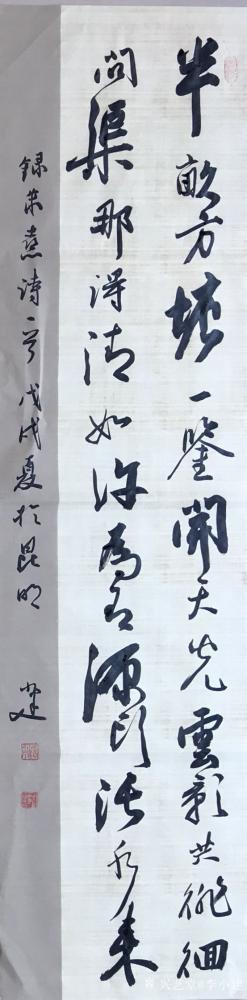 半畝方塘一鑒開天光雲影共徘徊
問渠那得清如許為有源頭活水來
録朱熹詩一首戊戌夏於昆明